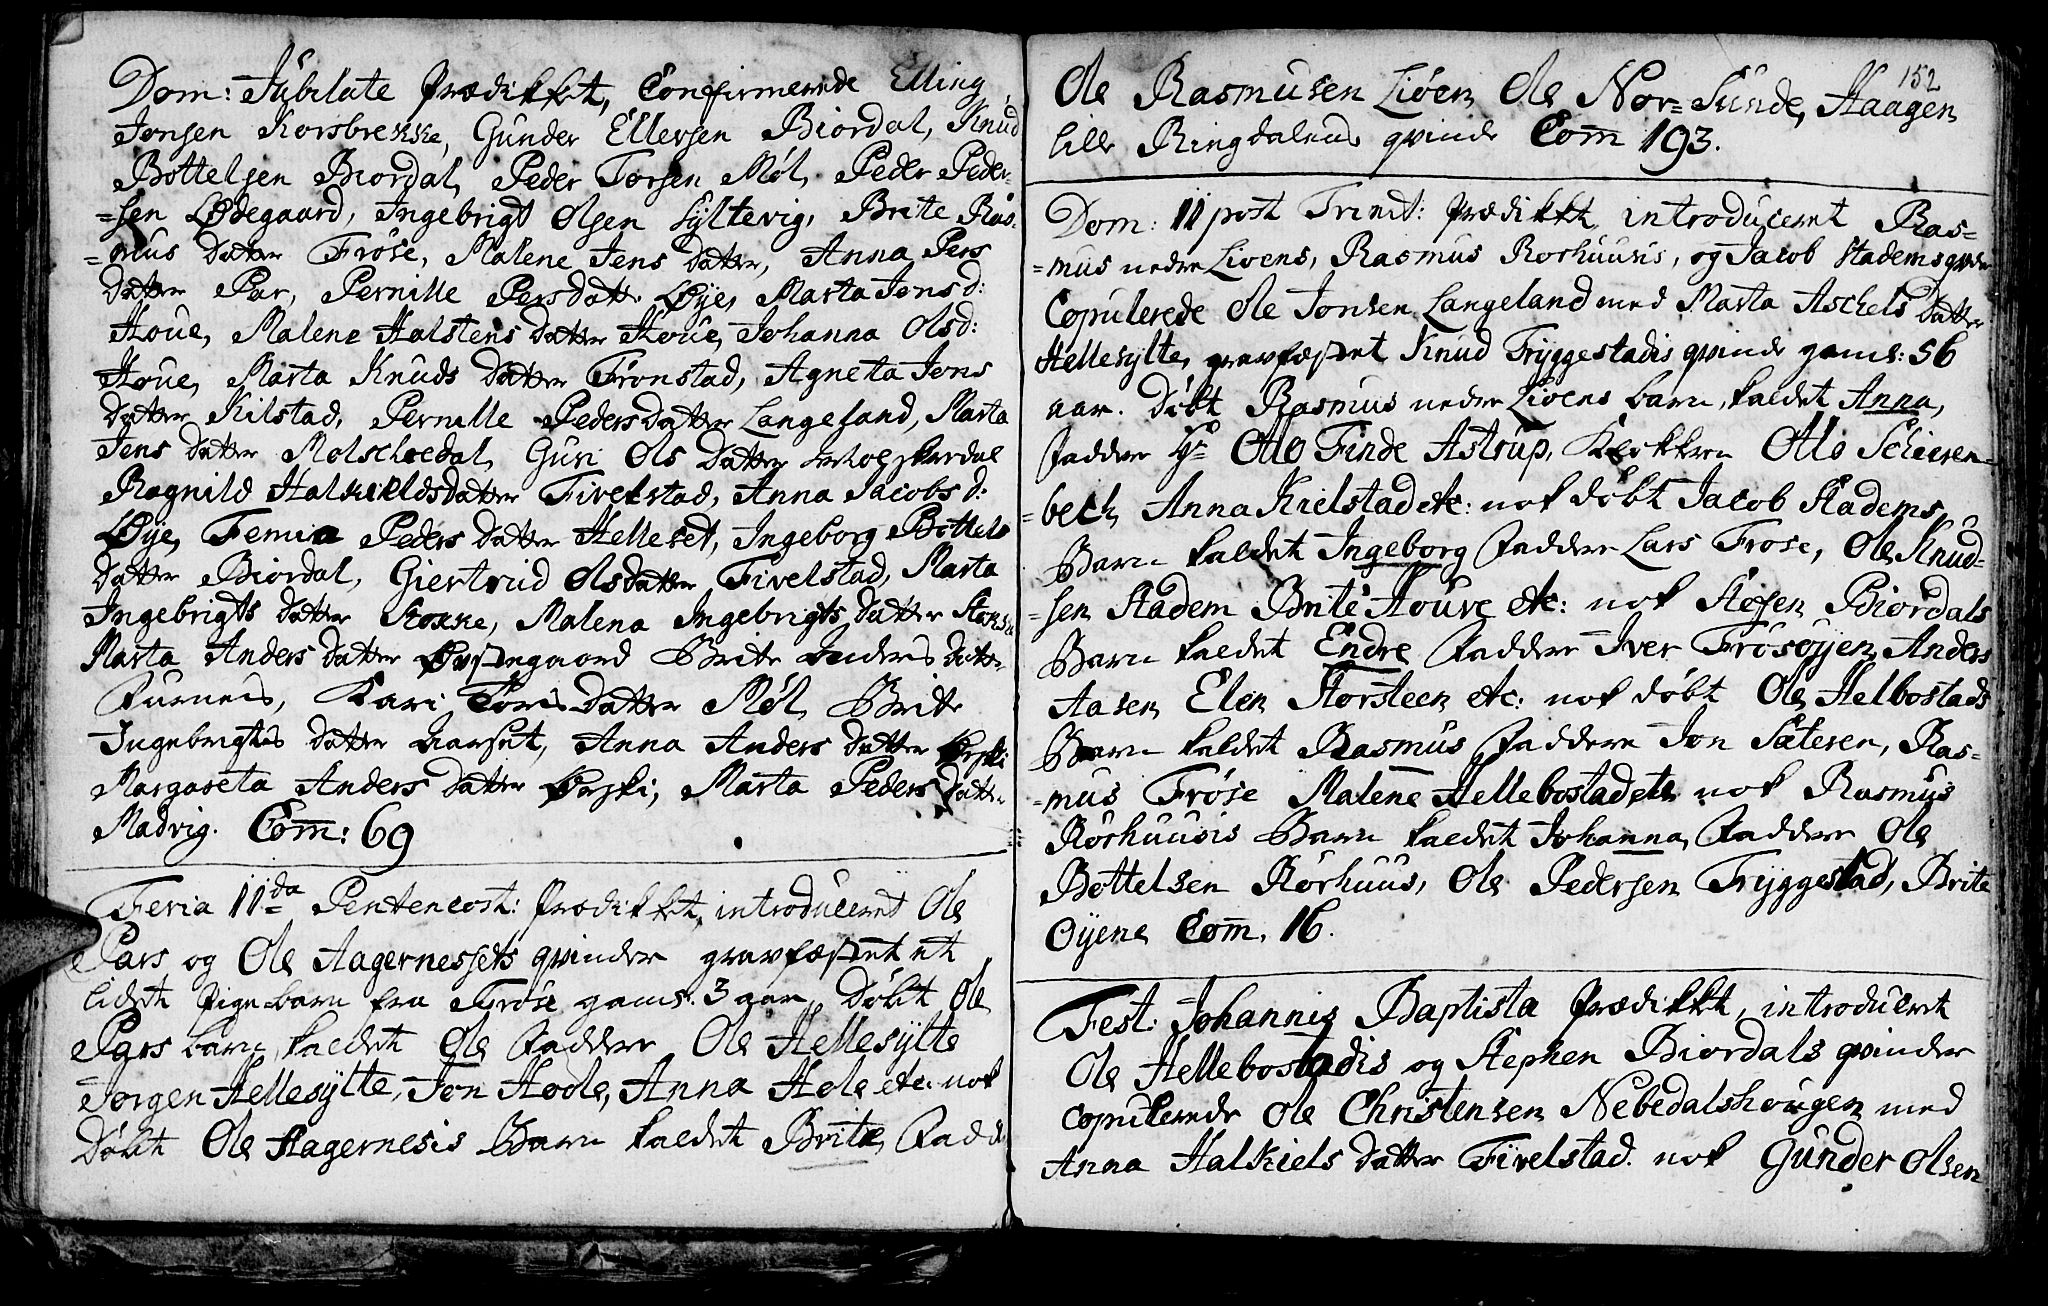 Dom: Jubilate Prædikket, Confirmerede Elling
Jonsen Korsbrekke, Gunder Ellersen Biordal, Knud
Bottelsen Biordal, Peder Torsen Møl, Peder Peder-
=sen Ødegaard, Ingebrigt Olsen Syltevig, Brite Ras-
=mus datter Frøse, Malene Jens datter, Anna Pers
datter Par, Pernille Persdatt: Øye, Marta Jons d:
Houe, Malene Halstens datter Houe, Johanna Olsd:
Houe, Marta Knuds datter Tronstad, Agneta Jons
datter Kilstad, Pernille Pedersdatter Langeland, Marta
Jens datter Molschredal, Guri Ols datter
Ragnild Halkieldsdatter Fivelstad, Anna Jacobs d:
Øye, Femia Peders datter Helleset, Ingeborg Bottels
datter Biordal, Giertrud Olsdatter Fivelstad, Marta
Ingebrigts datter Stokke, Malena Ingebrigts datter
Marta Anders datter Brite Anders datter
Furnes, Kari Tores datter Møl, Brite
Ingebrigtes datter Aarset, Anna Anders datter
Margareta Anders datter Marta Peders datter
Madvig. Com: 69
Feria 11da Pentecost: Prædikket, introduceret Ole
Pars og Ole Aagernessets qvinder gravfæstet et
lidet Pige barn fra Frøse gaml: 3 aar, Døbt Ole
Pars barn, kaldet Ole Faddere Ole Hellesylte
Jørgen Hellesylte, Jon Hoole, Anna Hole etc: nok
Døbt Ole Aagernesis Barn kaldet Brite, Fadd
152
Ole Rasmusen Liøen Ole Nor=Sunde, Haagen
lille Ringdalens qvinde Com 193.
Dom: 11 post Trinit: Prædikket, introduceret Ras-
=mus nedre Lioens, Rasmus Rorhuusis, og Jacob Stadems qvinder
Copulerede Ole Jonsen Langeland med Marta Aschels datter
Hellesylte, gravfæstet Knud Tryggestadis qvinde gaml: 56
aar. Døbt Rasmus nedre Lioens barn, kaldet Anna,
Faddere Hr Otto Finde Astrup, Klokkeren Otto Schieren-
=bech, Anna Kielstad etc: nok døbt Jacob Stadems
Barn kaldet Ingeborg Faddere Lars Frose, Ole Knud-
=sen Stadem Brite Houve etc: nok Stefen Biordals
Barn kaldet Endre Faddere Iver Frosøyen, Anders
Aasen, Elen Storsteen etc: nok døbt Ole Helbostads
Barn kaldet Rasmus Faddere Jon Sæteren, Ras-
=mus Frøse Malene Hellebostad etc nok Rasmus
Rorhuusis Barn kaldet Johanna, Faddere Ole
Bottelsen Rorhuus, Ole Pedersen Tryggestad, Brite
Øyene Com. 16.
Fest: Johannis Baptista Prædikket, introduceret
Ole Hellebostadis og Stephen Biordals qvinder
copulerede Ole Christensen Nebedalshougen med
Anna Halkiels datter Fivelstad. nok Gunder Olsen